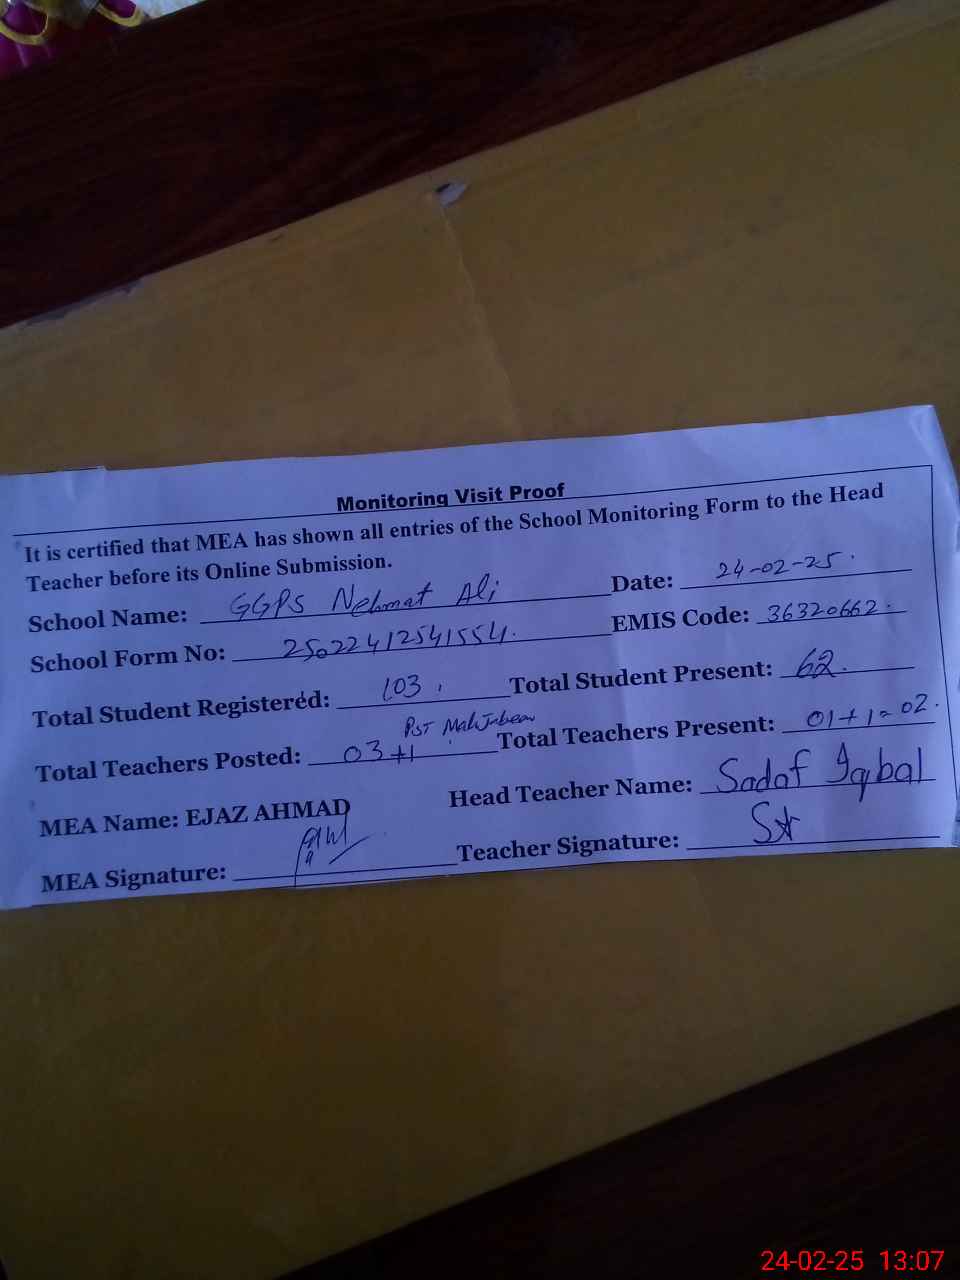 Monitoring Visit Proof
It is certified that MEA has shown all entries of the School Monitoring Form to the Head
Teacher before its Online Submission.
School Name: GGPS Nehmat Ali Date: 24-02-25.
School Form No: 25022412541554. EMIS Code: 36320662.
Total Student Registered: 103. Total Student Present: 62.
PST
Total Teachers Posted: 03+1 Total Teachers Present: 01+1=02.
MEA Name: EJAZ AHMAD Head Teacher Name: Sadaf Iqbal
MEA Signature: Teacher Signature:
24-02-25 13:07